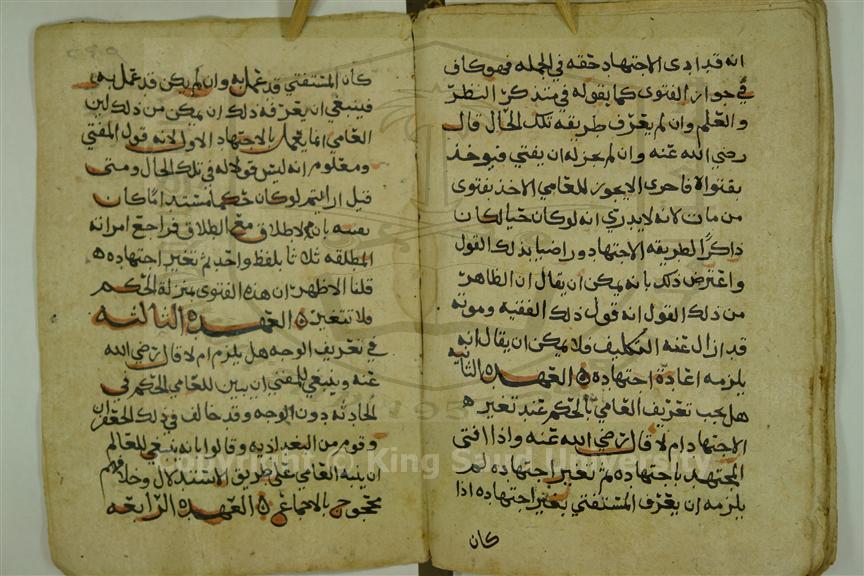 انه قد ادى الاجتهاد حقه في الجمله فهو كاف
في جواز الفتوى كما يقوله في متذكر النظر
والعلم وان لم يعرف طريقه تلك الحال قال
رضي الله عنه وان لم يجز له ان يفتي فيوخذ
بفتواه فاحرى الا يجوز للعامي الاخذ بفتوى
من مات لانه لا يدري انه لو كان حيا لكان
ذاكرا لطريقه الاجتهاد وراضيا بذلك القول
واعترض ذلك بانه يمكن ان يقال ان الظاهر
من ذلك القول انه قول ذلك الفقيه وموته
قد ازال عنه التكليف فلا يمكن ان يقال انه
يلزمه اعادة اجتهاده العهده الثانيه
هل يجب تعريف العامي بالحكم عند تغير
الاجتهاد ام لا قال رضي الله عنه واذا افتى
المجتهد باجتهاده ثم تغير اجتهاده لم
يلزمه ان يعرف المستفتي بتغير اجتهاده اذا
كان
كان المستفتي قد عمل به وان لم يكن قد عمل به
فينبغي ان يعرفه ذلك ان تمكن من ذلك لان
العامي انما يعمل بالاجتهاد الاول لانه قول المفتي
ومعلوم انه ليس قولا له في تلك الحال ومتى
قيل ارايتم لو كان حكما مستندا كان
بان الاطلاق مع الطلاق فراجع امراته
المطلقه ثلاثا بلفظ واحد ثم تغير اجتهاده
قلنا الاظهر ان هذه الفتوى بمنزلة الحكم
فلا تتغير العهده الثالثه
في تعريف الوجه هل يلزم ام لا قال رضي الله
عنه وينبغي للمفتي ان يبين للعامي الحكم في
الحادثه دون الوجه وقد خالف في ذلك الجعفران
وقوم من البغداديه وقالوا بانه ينبغي للعالم
ان ينبه العامي على طريق الاستدلال وخلافهم
محجوج بالاجماع العهده الرابعه
Copyright © King Saud University